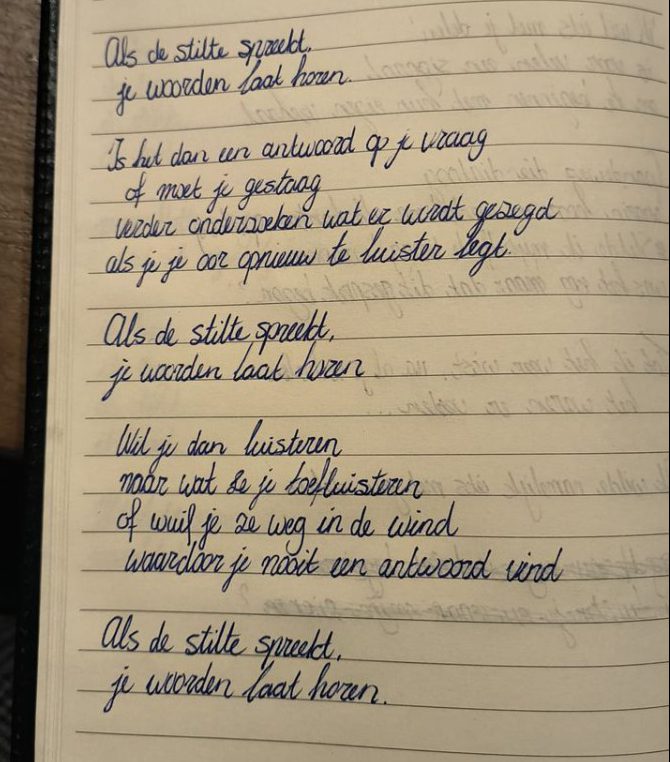 Als de stilte spreekt,
je woorden laat horen.
Is het dan een antwoord op je vraag
of moet je gestaag
verder onderzoeken wat er wordt gezegd
als je je oor opnieuw te luister legt.
Als de stilte spreekt,
je woorden laat horen
Wil je dan luisteren
naar wat ze je toefluisteren
of wuif je ze weg in de wind
waardoor je nooit een antwoord vind
Als de stilte spreekt,
je woorden laat horen.